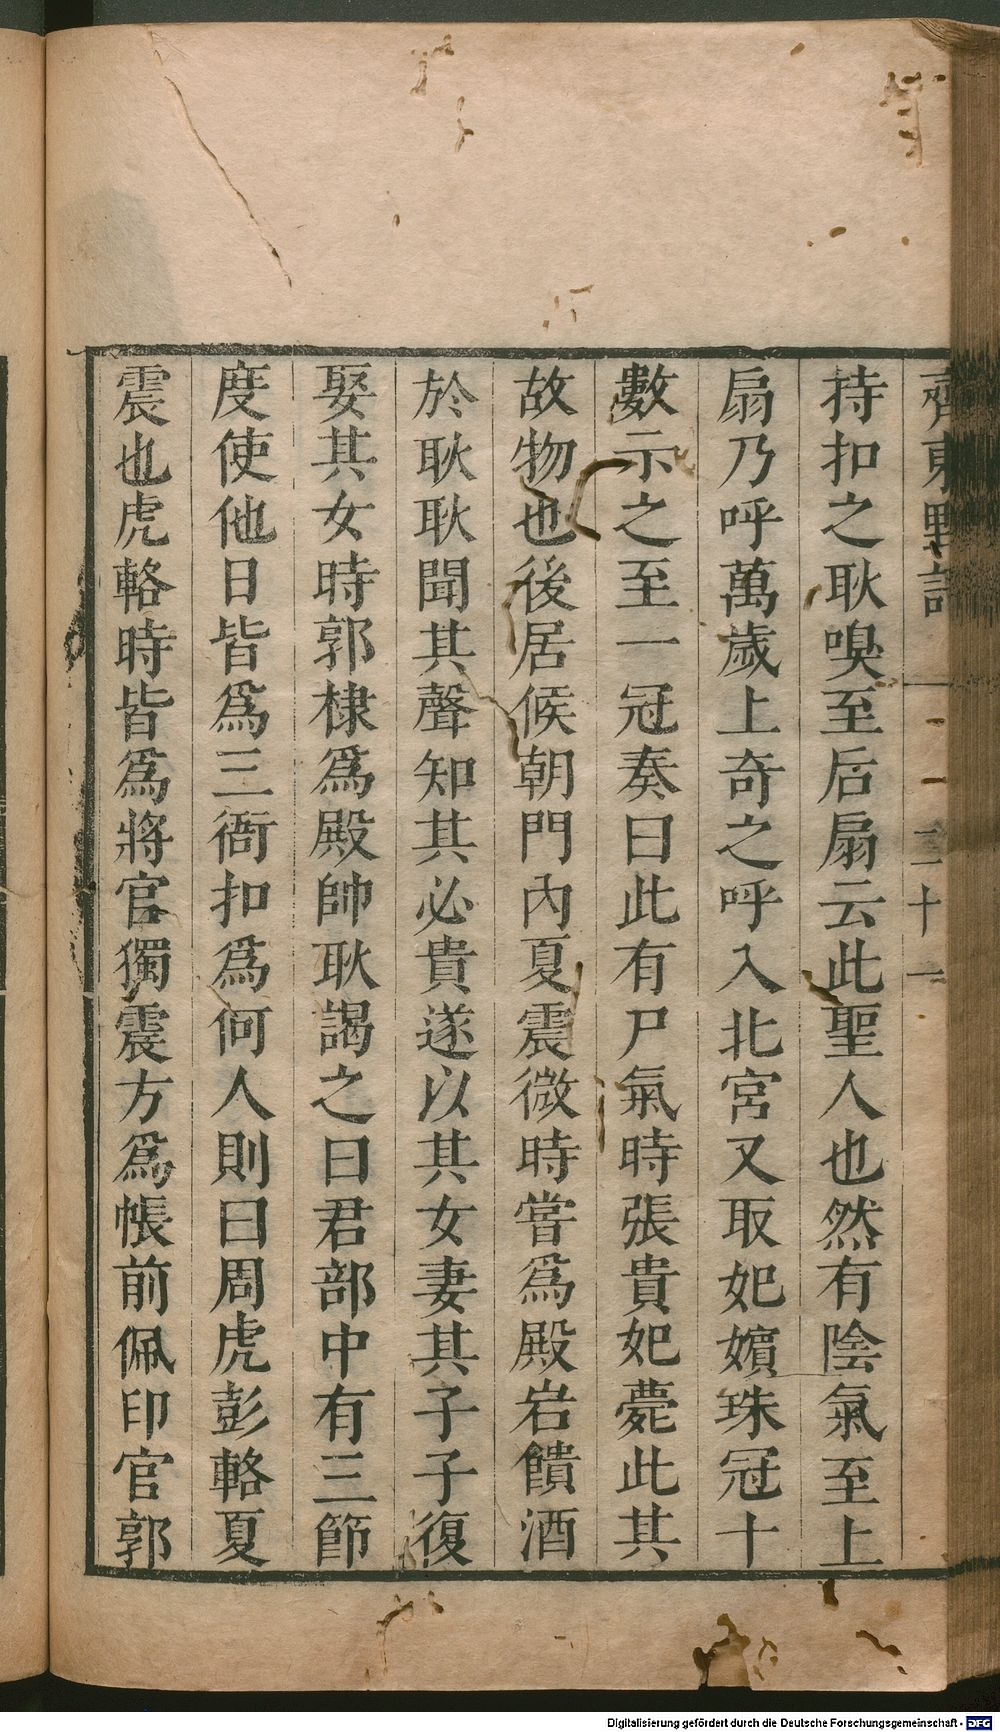 齊東野語
二十一
持扣之耿嗅至后扇云此聖人也然有陰氣至上
扇乃呼萬歲上奇之呼入北宮又取妃嬪珠冠十
數示之至一冠奏曰此有尸氣時張貴妃薨此其
故物也後居候朝門內夏震微時嘗爲殿岩饋酒
於耿耿聞其聲知其必貴遂以其女妻其子子復
娶其女時郭棣爲殿帥耿謁之曰君部中有三節
度使他日皆爲三衙扣爲何人則曰周虎彭輅夏
震也虎輅時皆爲將官獨震方爲帳前佩印官郭
Digitalisierung gefördert durch die Deutsche Forschungsgemeinschaft - DFG